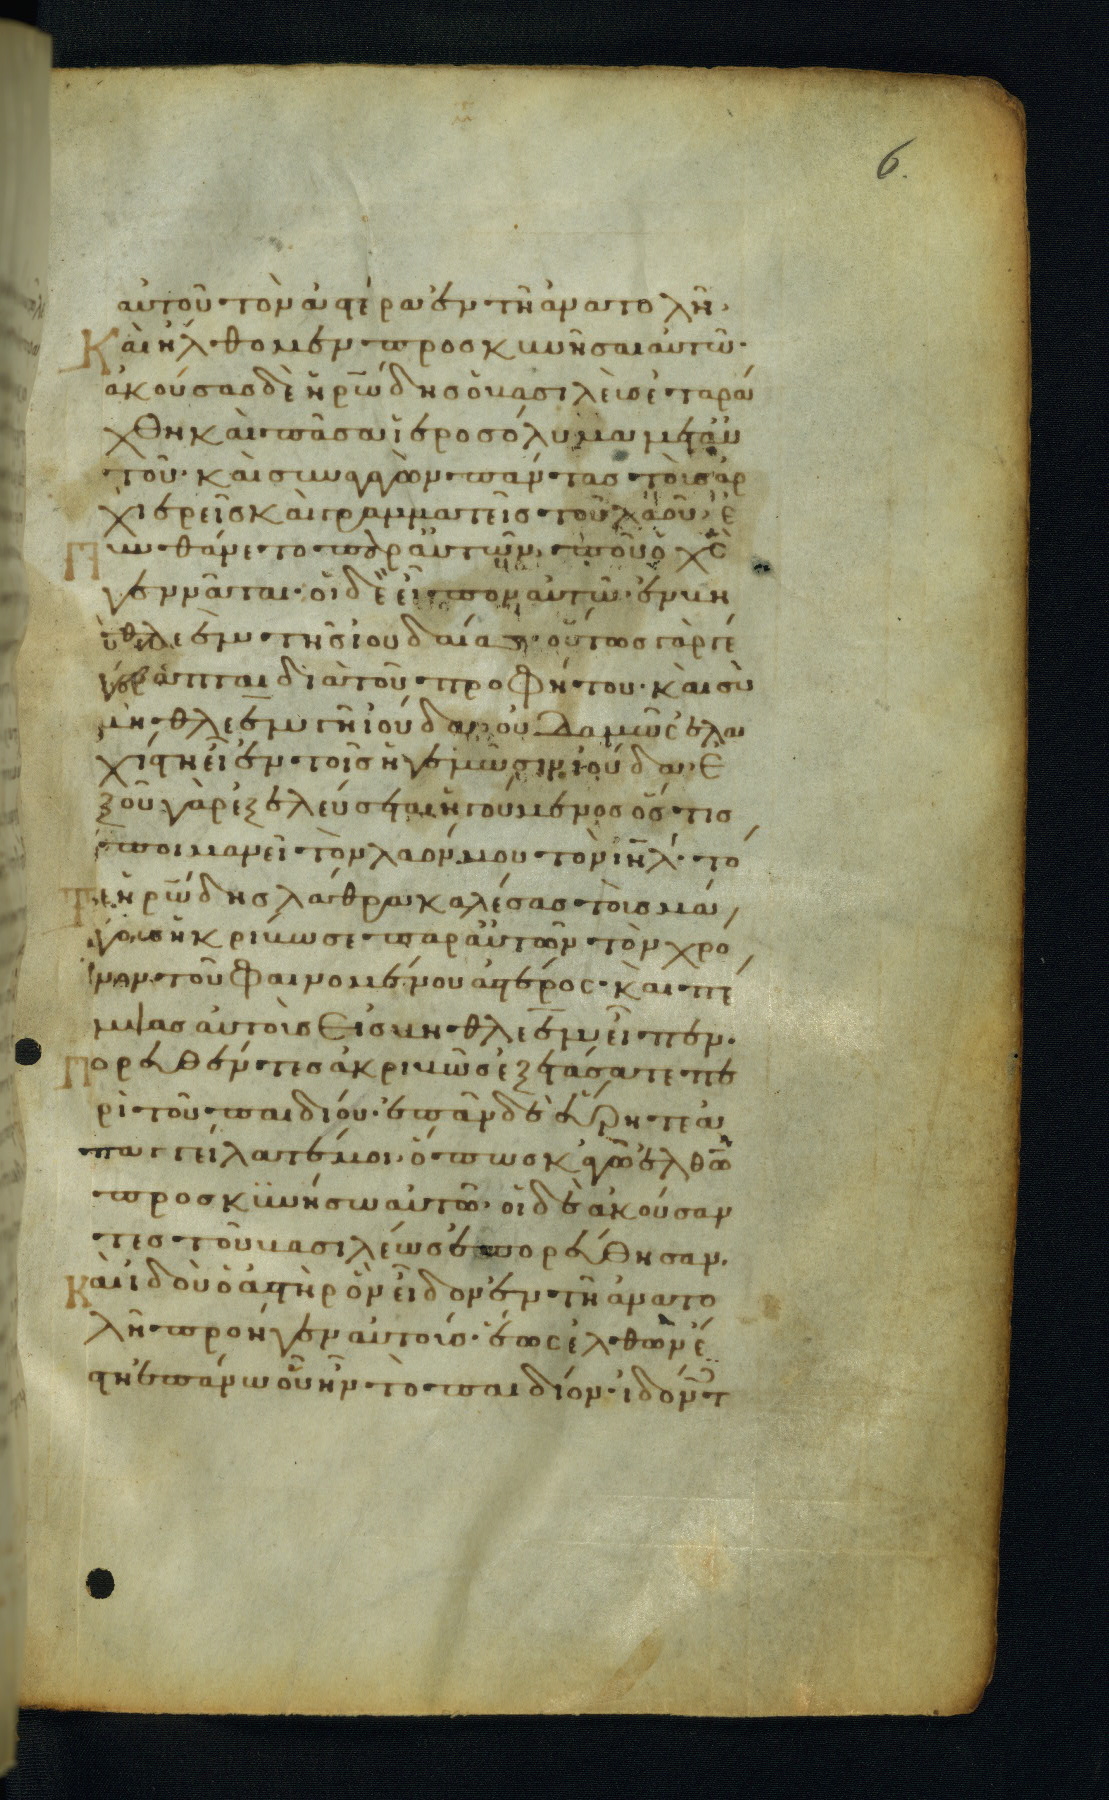 6.
αὐτοῦ τὸν ἀστέρα ἐν τῆ ἀνατολῆ.
Καὶ ἤλθομεν προσκυνῆσαι αὐτῶ.
ἀκούσας δὲ ἡρώδης ὁ βασιλεὺς ἐταρά
χθη καὶ πᾶσα ἱεροσόλυμα μετ αὐ
τοῦ. καὶ συναγαγὼν πάντας τοὺς ἀρ
χιερεῖς καὶ γραμματεῖς τοῦ λαοῦ. ἐ
Πυνθάνετο παρ αὐτῶν. ποῦ ὁ χς
γεννᾶται. οἱ δὲ εἶπον αὐτῶ. ἐν βη
θλεὲμ τῆς ἰουδαίας. οὕτως γὰρ γέ
γραπται διὰ τοῦ προφήτου. καὶ σὺ
βηθλεὲμ γῆ ἰούδα. οὐδαμῶς ἐλα
χίστη εἶ ἐν τοῖς ἡγεμῶσιν ἰούδα. ἐ
ξοῦ γὰρ ἐξελεύσεται ἡγούμενος ὅστις
ποιμανεῖ τὸν λαόν μου τὸν ιηλ. τό
Τε ἡρώδης λάθρα καλέσας τοὺς μά
γους ἠκρίβωσε παρ αὐτῶν τὸν χρό
νον τοῦ φαινομένου ἀστέρος. καὶ πέ
μψας αὐτοὺς εἰς βηθλεὲμ εἶπεν.
Πορευθέντες ἀκριβῶς ἐξετάσατε πε
ρὶ τοῦ παιδίου. ἐπὰν δὲ εὕρητε ἀ
παγγείλατέ μοι. ὅπως κἀγὼ ἐλθὼν
προσκϋνήσω αὐτῶ. οἱ δὲ ἀκούσαν
τες τοῦ βασιλέως ἐπορεύθησαν.
Καὶ ἰδοὺ ὁ ἀστὴρ ὃν εἶδον ἐν τῆ ἀνατο
λῆ προῆγεν αὐτούς. ἕως ἐλθὼν ἔ
στη ἐπάνω οὗ ἦν τὸ παιδίον. ἰδόντ